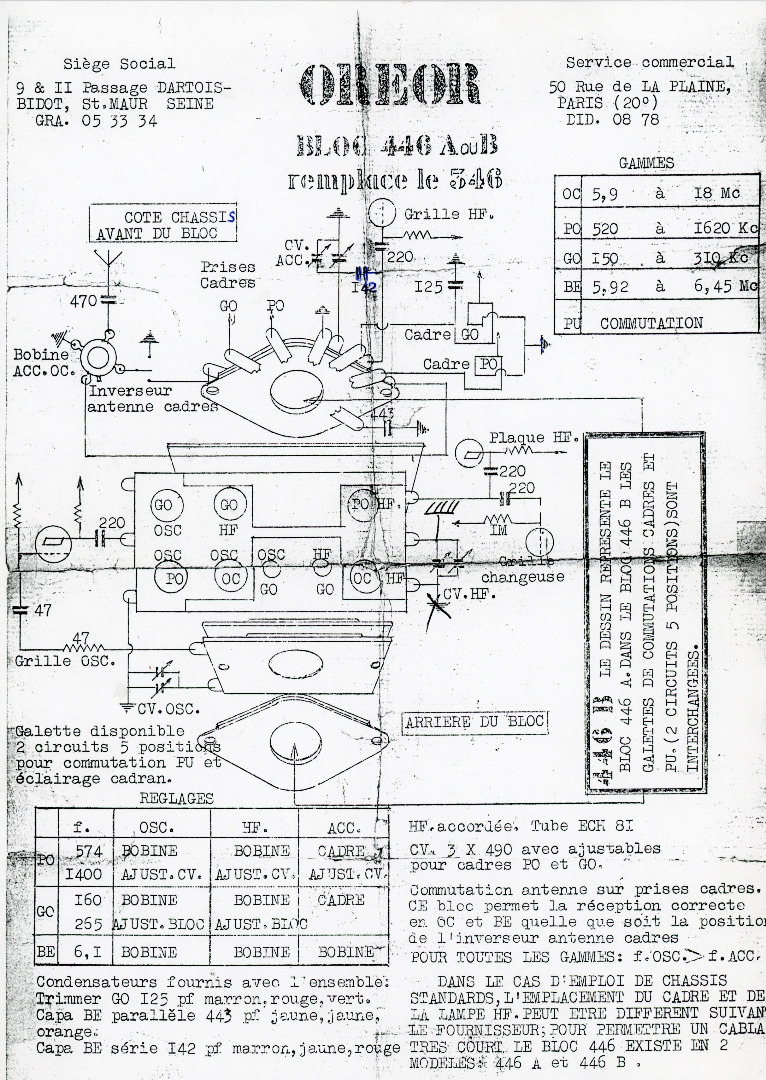 Siège Social
9 & II Passage DARTOIS-
BIDOT, St.MAUR SEINE
GRA. 05 33 34
OREOR
BLOC 446 A ou B
remplace le 346
Service commercial
50 Rue de LA PLAINE,
PARIS (20°)
DID. 08 78
GAMMES
OC 5,9 à I8 Mc
PO 520 à I620 Kc
GO I50 à 3I0 Kc
BE 5.92 à 6,45 Mc
PU COMMUTATION
COTE CHASSIS
AVANT DU BLOC
470
Bobine
ACC.OC.
Inverseur
antenne cadres
Prises
Cadres
GO
PO
CV.
ACC.
Grille HF.
220
I42
I25
Cadre GO
Cadre PO
443
Plaque HF.
220
220
IM
Grille
changeuse
CV.HF.
GO
OSC
GO
HF
PO HF.
OSC
PO
OSC
OC
OSC
GO
HF
GO
OC HF
220
47
47
Grille OSC.
CV.OSC.
Galette disponible
2 circuits 5 positions
pour commutation PU et
éclairage cadran.
ARRIERE DU BLOC
446 B LE DESSIN REPRESENTE LE
BLOC 446 A.DANS LE BLOC 446 B LES
GALETTES DE COMMUTATIONS CADRES ET
PU.(2 CIRCUITS 5 POSITIONS)SONT
INTERCHANGEES.
REGLAGES
f. OSC. HF. ACC.
PO 574 BOBINE BOBINE CADRE
I400 AJUST.CV. AJUST.CV. AJUST.CV.
GO I60 BOBINE BOBINE CADRE
265 AJUST.BLOC AJUST.BLOC
BE 6,I BOBINE BOBINE BOBINE
Condensateurs fournis avec l'ensemble:
Trimmer GO I25 pf marron,rouge,vert.
Capa BE parallèle 443 pf jaune,jaune,
orange.
Capa BE série I42 pf marron,jaune,rouge
HF.accordée. Tube ECH 8I
CV. 3 X 490 avec ajustables
pour cadres PO et GO.
Commutation antenne sur prises cadres.
CE bloc permet la réception correcte
en OC et BE quelle que soit la position
de l'inverseur antenne cadres
POUR TOUTES LES GAMMES: f.OSC.> f.ACC.
DANS LE CAS D'EMPLOI DE CHASSIS
STANDARDS,L'EMPLACEMENT DU CADRE ET DE
LA LAMPE HF.PEUT ETRE DIFFERENT SUIVAN
LE FOURNISSEUR;POUR PERMETTRE UN CABLA
TRES COURT LE BLOC 446 EXISTE EN 2
MODELES: 446 A et 446 B .